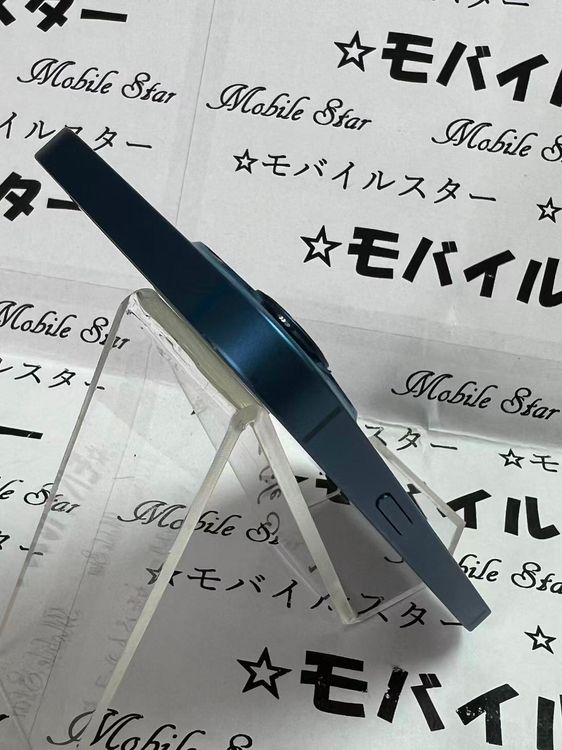 スター
Mobile Star
☆モバイル
Mobile Star
Mobile S
イルスター
☆モバイルスター
☆
スター
☆モバイル
Mobile Star
Mobile Star
ルスター
スター
☆モ
Mobile S
モバイル
bile Star
☆モバイルスター
☆
☆モバイル
Mobile Star